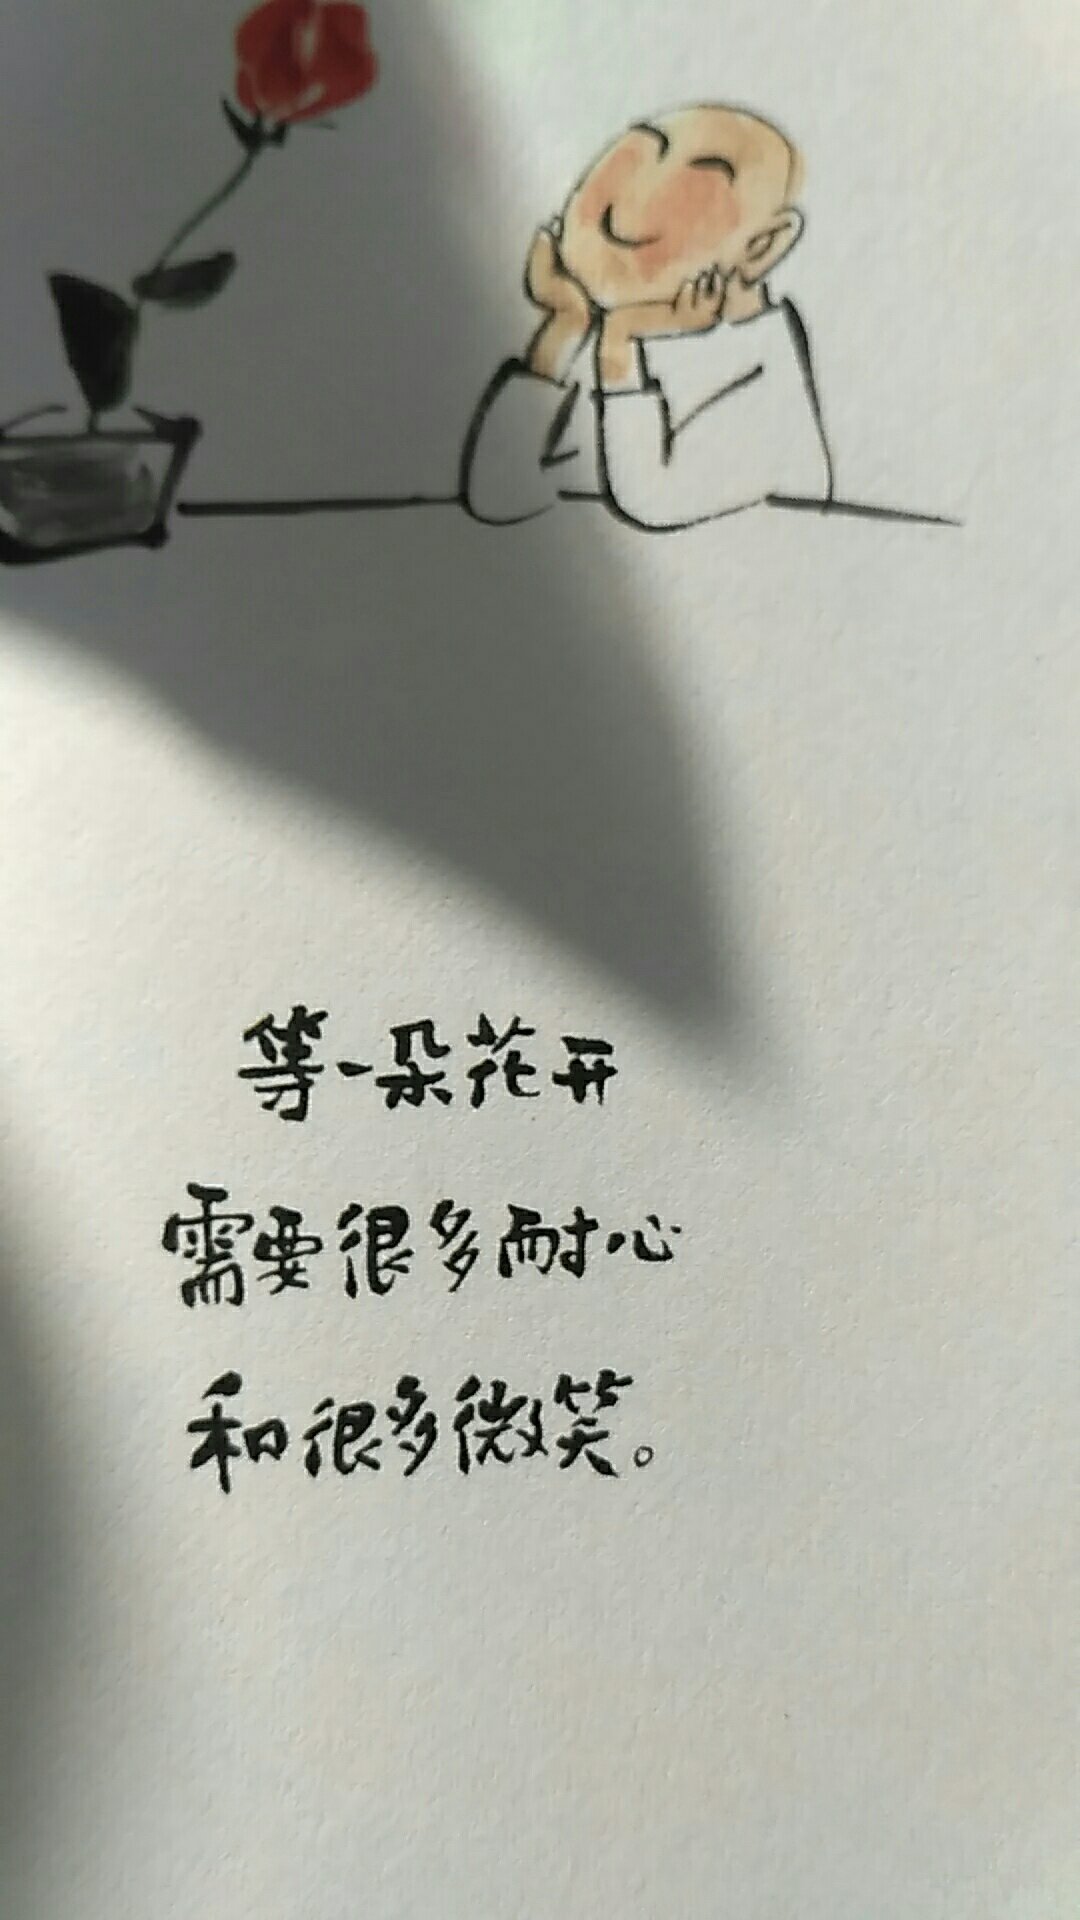 等一朵花开
需要很多耐心
和很多微笑。